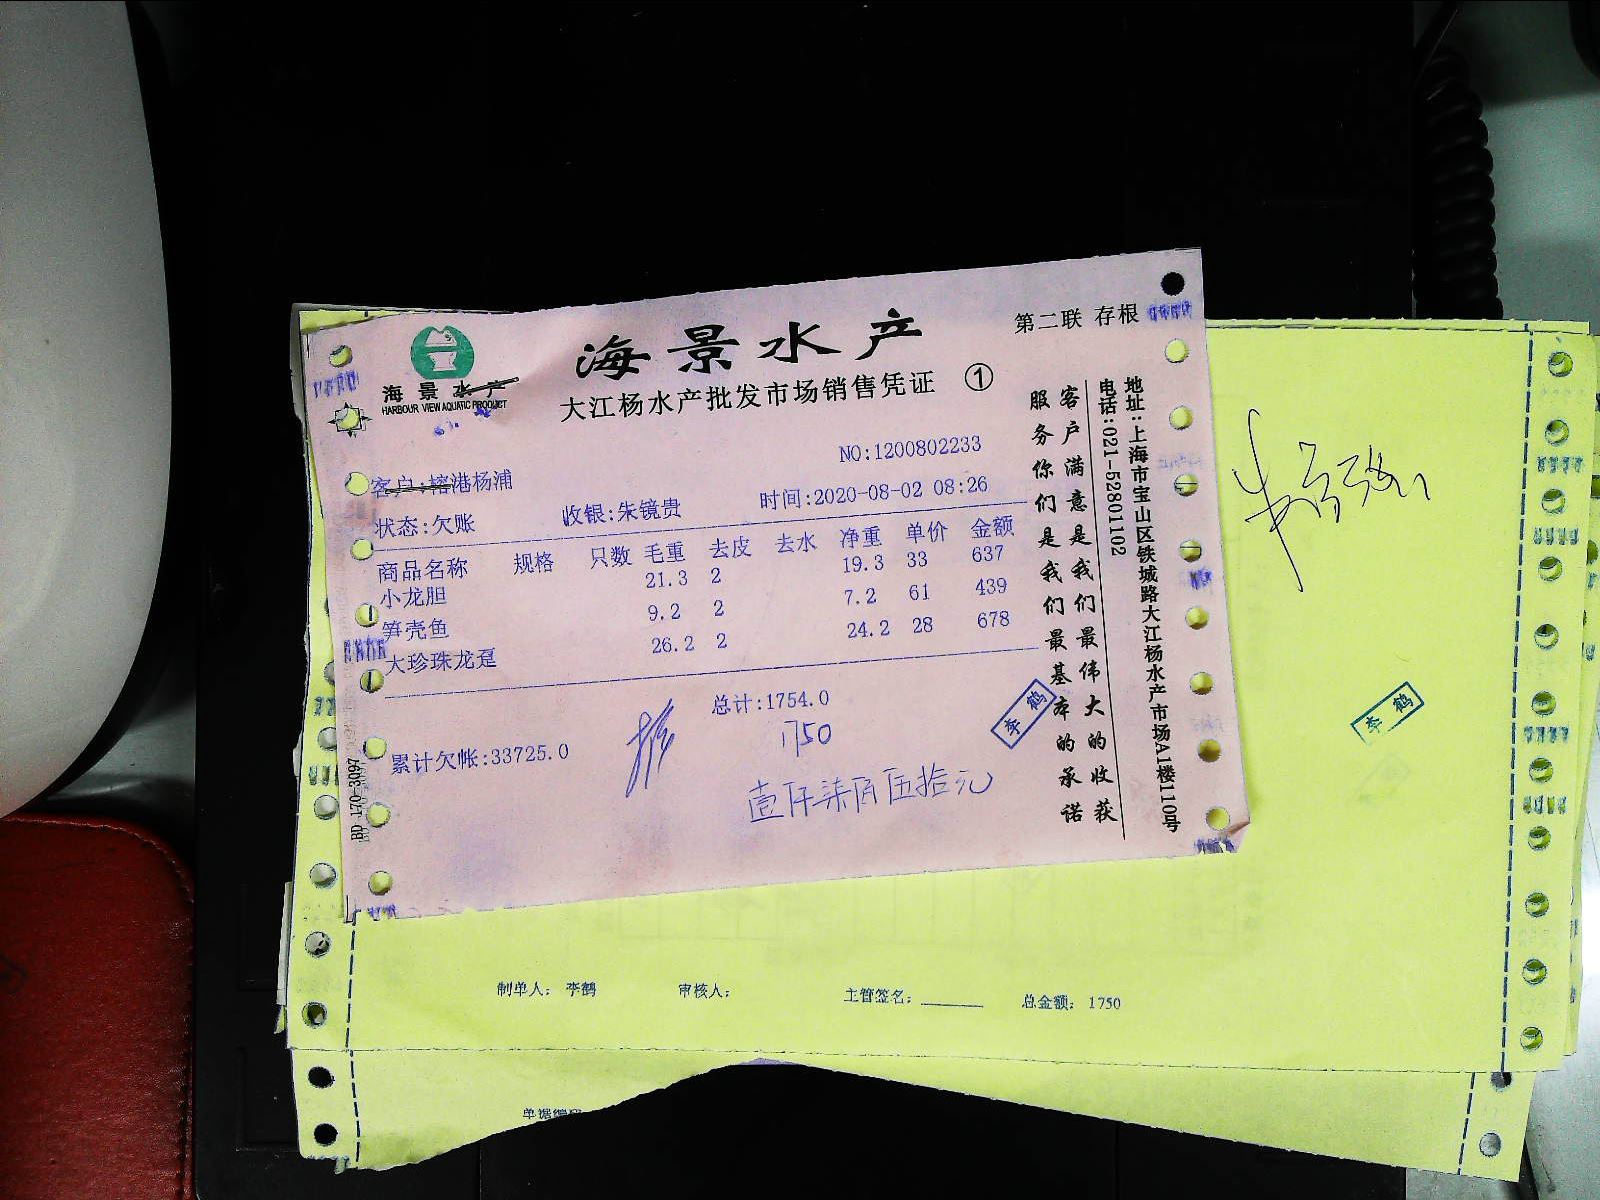 海景水产
HARBOUR VIEW AQUATIC PRODUCT
海景水产
第二联 存根
大江杨水产批发市场销售凭证 ①
NO:1200802233
客户:榕港杨浦
时间:2020-08-02 08:26
状态:欠账 收银:朱镜贵
商品名称 规格 只数 毛重 去皮 去水 净重 单价 金额
小龙胆 21.3 2 19.3 33 637
笋壳鱼 9.2 2 7.2 61 439
大珍珠龙趸 26.2 2 24.2 28 678
总计:1754.0
1750
累计欠帐:33725.0
壹仟柒佰伍拾元
李鹤
客户满意是我们最伟大的收获
服务你们是我们最基本的承诺
地址:上海市宝山区铁城路大江杨水产市场A1楼110号
电话:021-52801102
BD 170-3097
李鹤
制单人: 李鹤 审核人: 主管签名: 总金额: 1750
单据编号